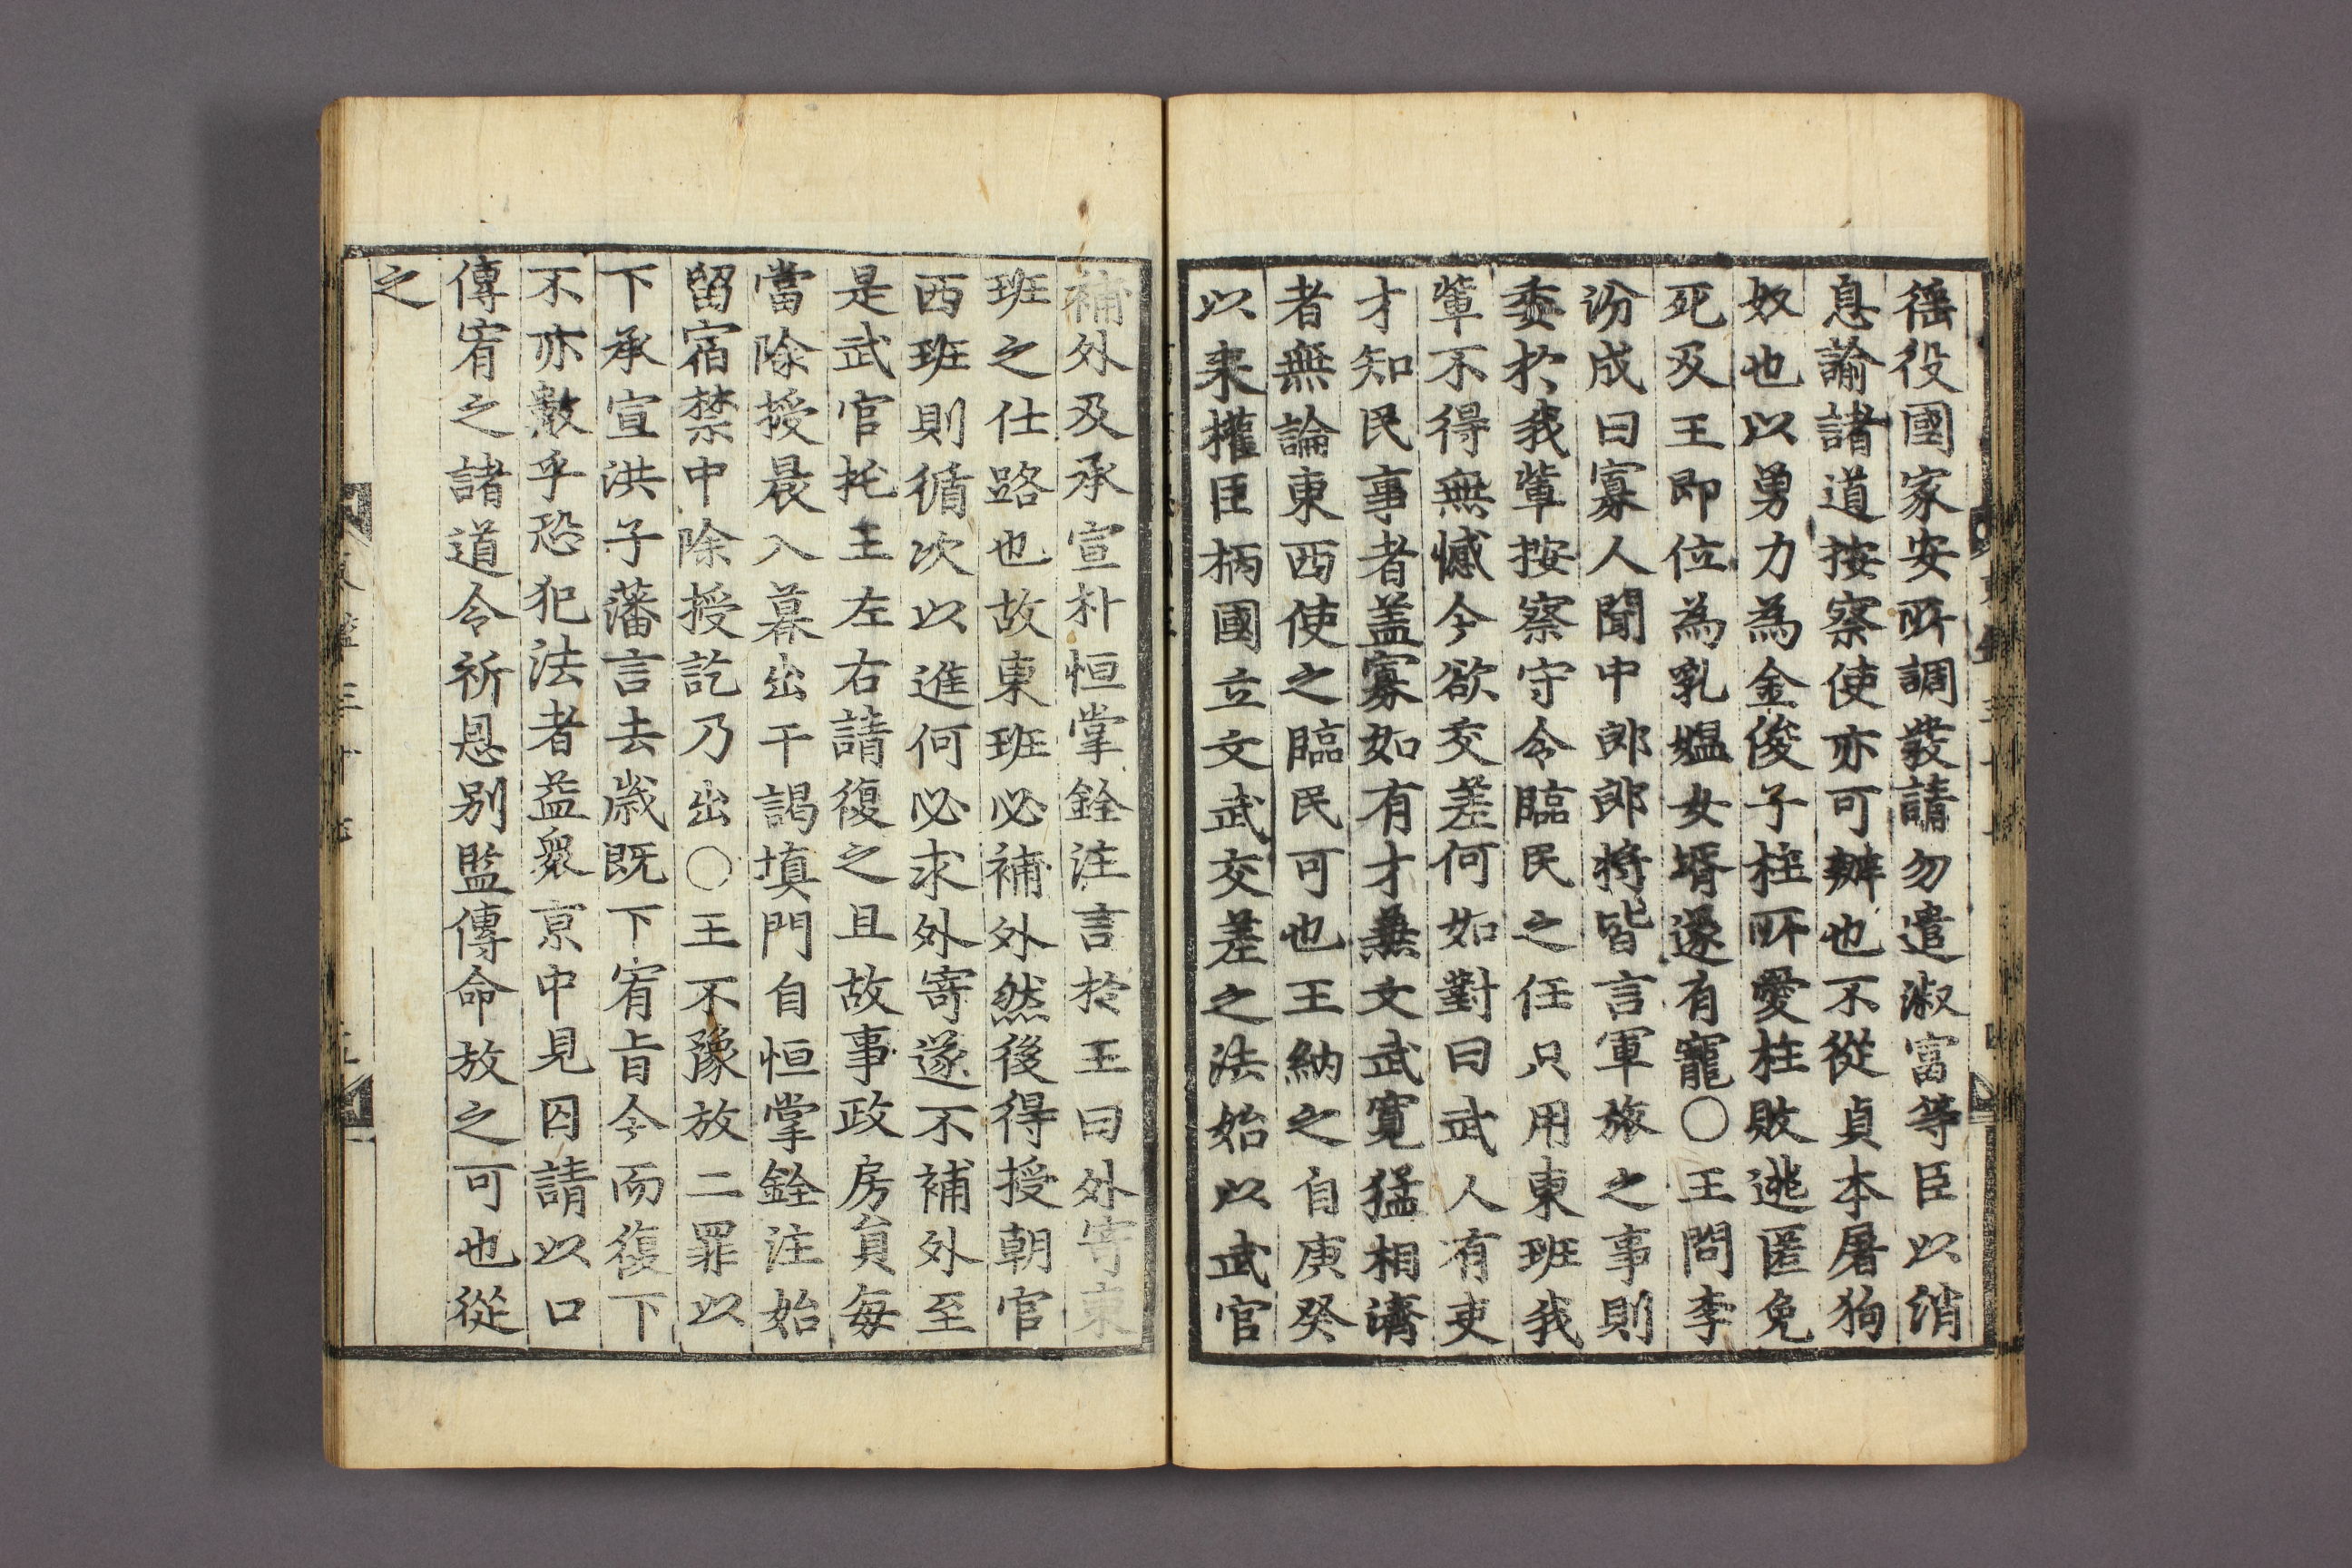 徭役國家安所調發請勿遣淑富等臣以消
息諭諸道按察使亦可辦也不從貞本屠狗
奴也以勇力為金俊子柱所愛柱敗逃匿免
死及王即位為乳媼女壻遂有寵○王問李
汾成曰寡人聞中郎郎將皆言軍旅之事則
委於我輩按察守令臨民之任只用東班我
輩不得無憾今欲交差何如對曰武人有吏
才知民事者盖寡如有才兼文武寬猛相濟
者無論東西使之臨民可也王納之自庚癸
以来權臣柄國立文武交差之法始以武官
補外及承宣朴恒掌銓注言於王曰外寄東
班之仕路也故東班必補外然後得授朝官
西班則循次以進何必求外寄遂不補外至
是武官托王左右請復之且故事政房負每
當除授晨入暮出干謁填門自恒掌銓注始
留宿禁中除授訖乃出○王不豫放二罪以
下承宣洪子藩言去歲既下宥旨今而復下
不亦數乎恐犯法者益衆京中見囚請以口
傳宥之諸道令祈恩别監傳命放之可也從
之